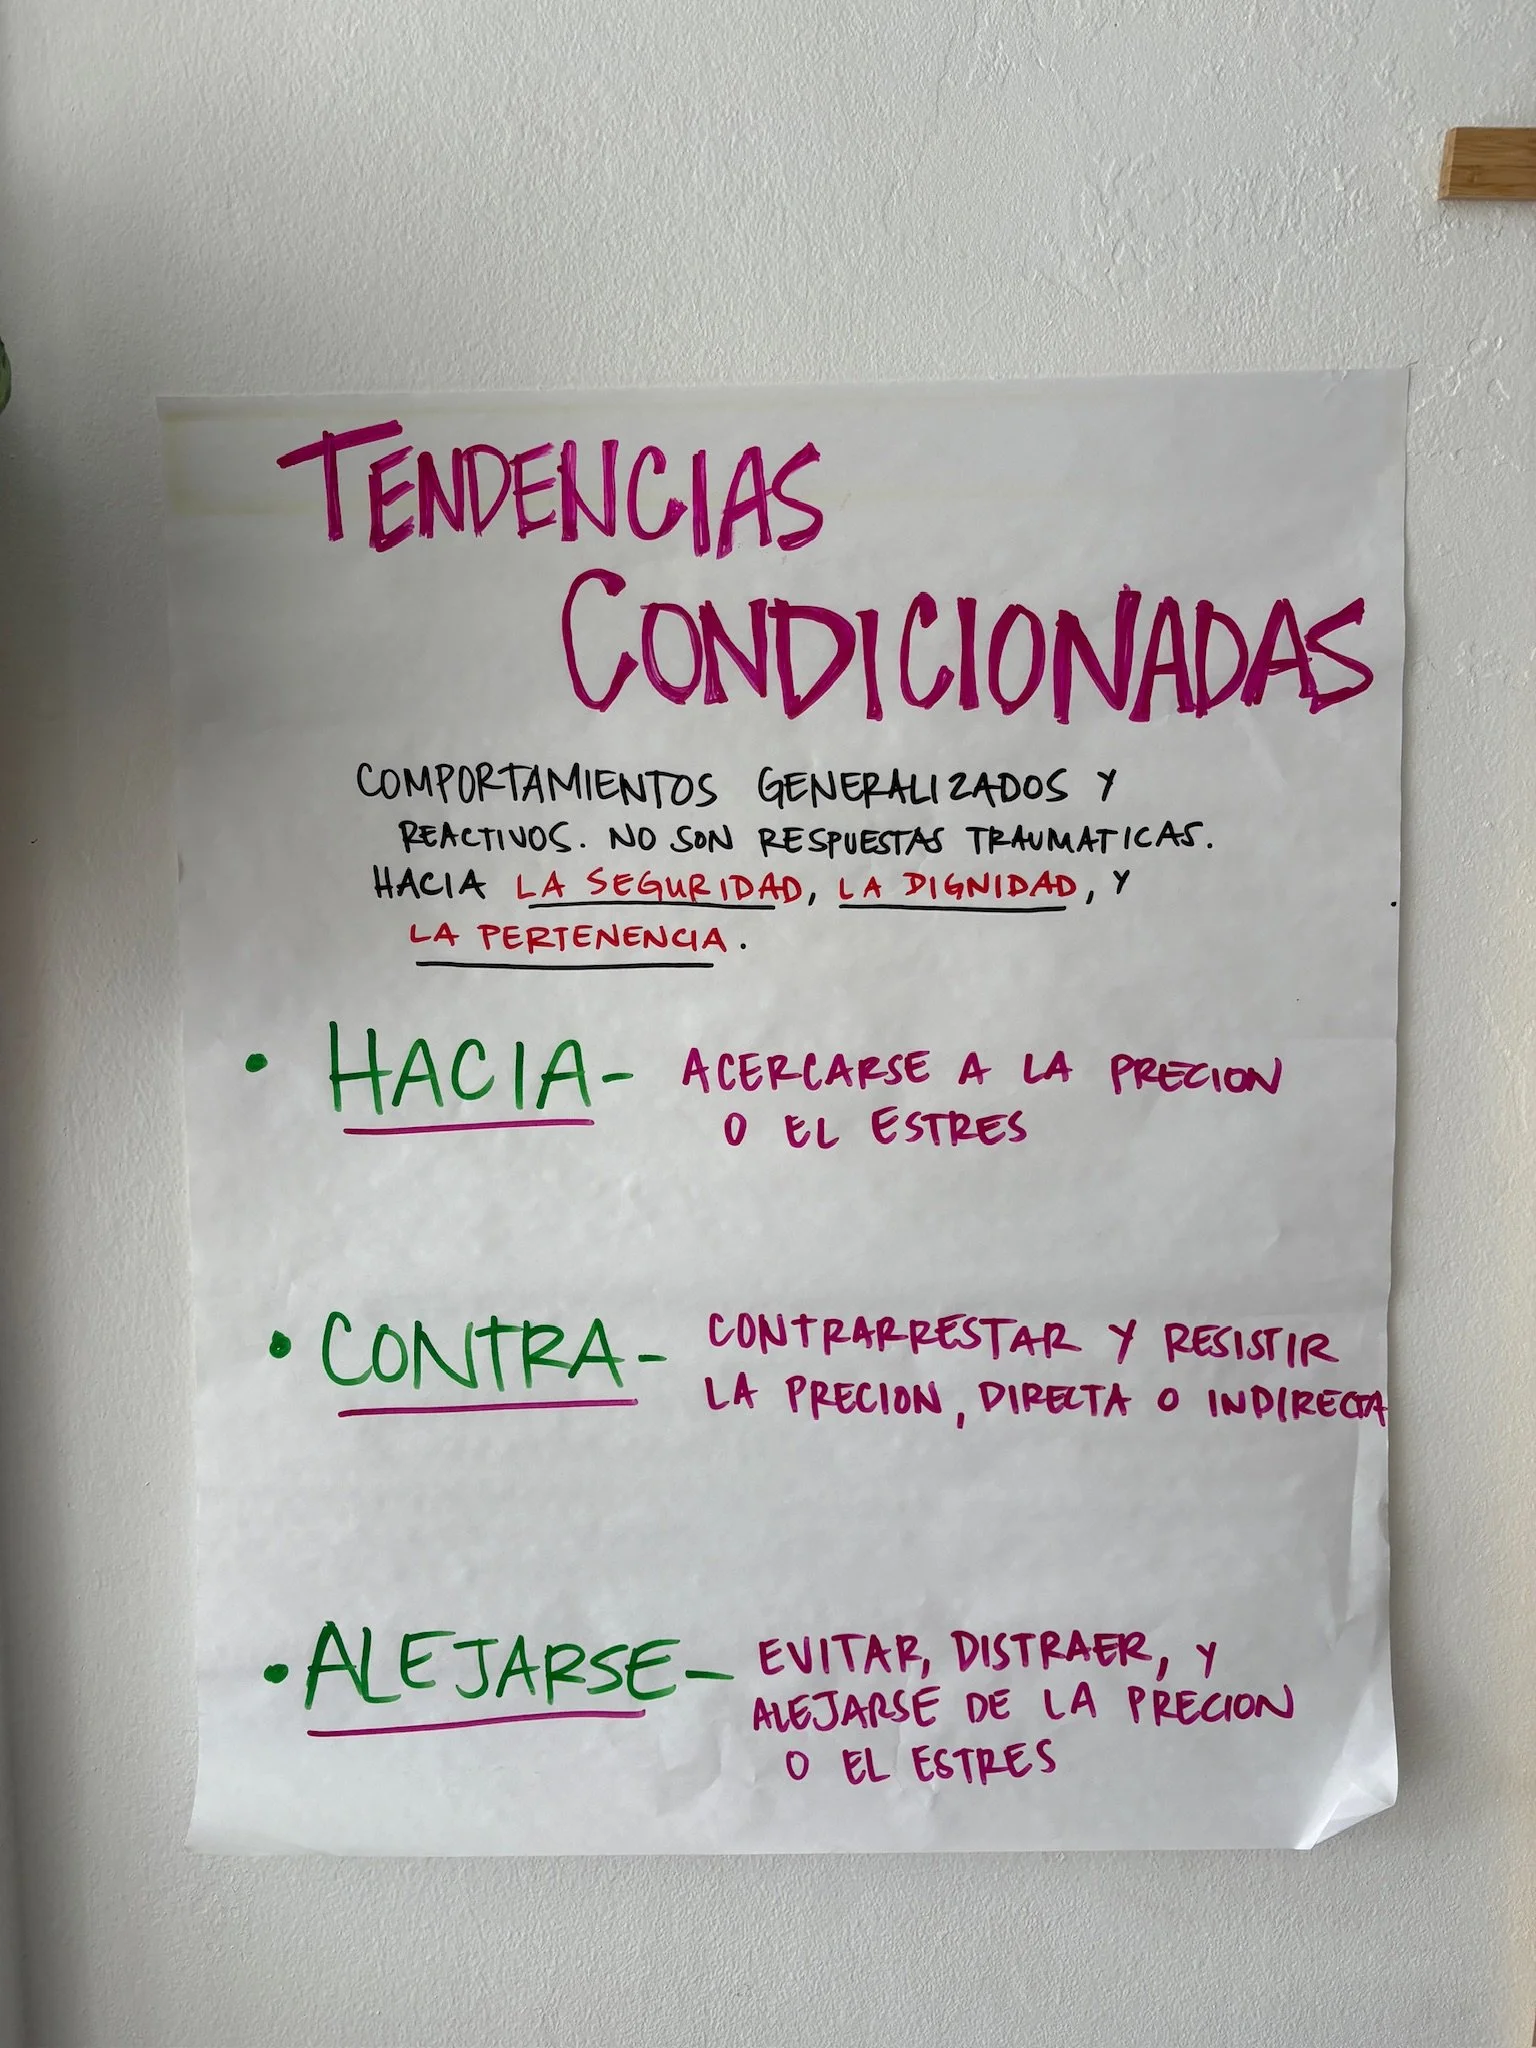 TENDENCIAS
CONDICIONADAS
COMPORTAMIENTOS GENERALIZADOS Y
REACTIVOS. NO SON RESPUESTAS TRAUMATICAS.
HACIA LA SEGURIDAD, LA DIGNIDAD, Y
LA PERTENENCIA.
• HACIA- ACERCARSE A LA PRECION
O EL ESTRES
• CONTRA- CONTRARRESTAR Y RESISTIR
LA PRECION, DIRECTA O INDIRECTA
• ALEJARSE- EVITAR, DISTRAER, Y
ALEJARSE DE LA PRECION
O EL ESTRES